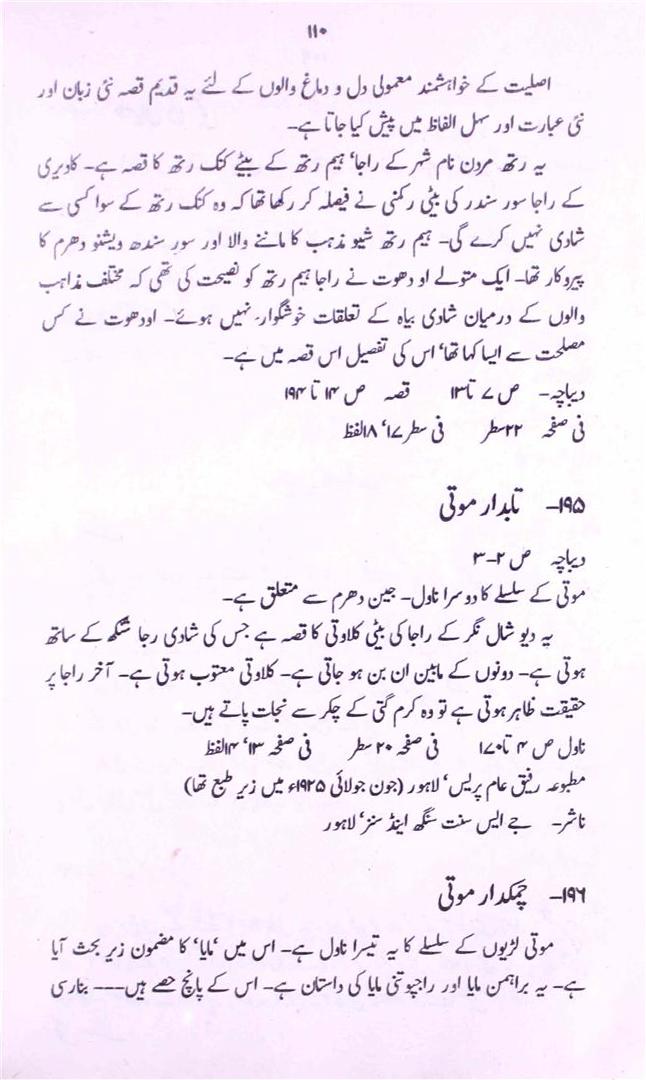 ۱۱۰
اصلیت کے خواہشمند معمولی دل و دماغ والوں کے لئے یہ قدیم قصہ نئی زبان اور
نئی عبارت اور سہل الفاظ میں پیش کیا جاتا ہے۔
یہ رتھ مردن نام شہر کے راجا، ہیم رتھ کے بیٹے کنک رتھ کا قصہ ہے۔ کادیری
کے راجا سور سندر کی بیٹی رکمنی نے فیصلہ کر رکھا تھا کہ وہ کنک رتھ کے سوا کسی سے
شادی نہیں کرے گی۔ ہیم رتھ شیو مذہب کا ماننے والا اور سور سندھ ویشنو دھرم کا
پیروکار تھا۔ ایک متولے اودھوت نے راجا ہیم رتھ کو نصیحت کی تھی کہ مختلف مذاہب
والوں کے درمیان شادی بیاہ کے تعلقات خوشگوار نہیں ہوئے۔ اودھوت نے کس
مصلحت سے ایسا کہا تھا، اس کی تفصیل اس قصہ میں ہے۔
دیباچہ۔ ص ۷ تا ۱۳ قصہ ص ۱۴ تا ۱۹۴
فی صفحہ ۲۲ سطر فی سطر ۱۷، ۱۸ لفظ
۱۹۵۔ تابدار موتی
دیباچہ ص ۲-۳
موتی کے سلسلے کا دوسرا ناول۔ جین دھرم سے متعلق ہے۔
یہ دیو شال نگر کے راجا کی بیٹی کلاوتی کا قصہ ہے جس کی شادی رجا شنکھ کے ساتھ
ہوتی ہے۔ دونوں کے مابین ان بن ہو جاتی ہے۔ کلاوتی معتوب ہوتی ہے۔ آخر راجا پر
حقیقت ظاہر ہوتی ہے تو وہ کرم گتی کے چکر سے نجات پاتے ہیں۔
ناول ص ۴ تا ۱۷۰ فی صفحہ ۲۰ سطر فی صفحہ ۱۳، ۱۴ لفظ
مطبوعہ رفیق عام پریس، لاہور (جون جولائی ۱۹۲۵ء میں زیر طبع تھا)
ناشر۔ جے ایس سنت سنگھ اینڈ سنز، لاہور
۱۹۶۔ چمکدار موتی
موتی لڑیوں کے سلسلے کا یہ تیسرا ناول ہے۔ اس میں 'مایا' کا مضمون زیر بحث آیا
ہے۔ یہ براہمن مایا اور راجپوتنی مایا کی داستان ہے۔ اس کے پانچ حصے ہیں۔۔۔۔ بنارسی